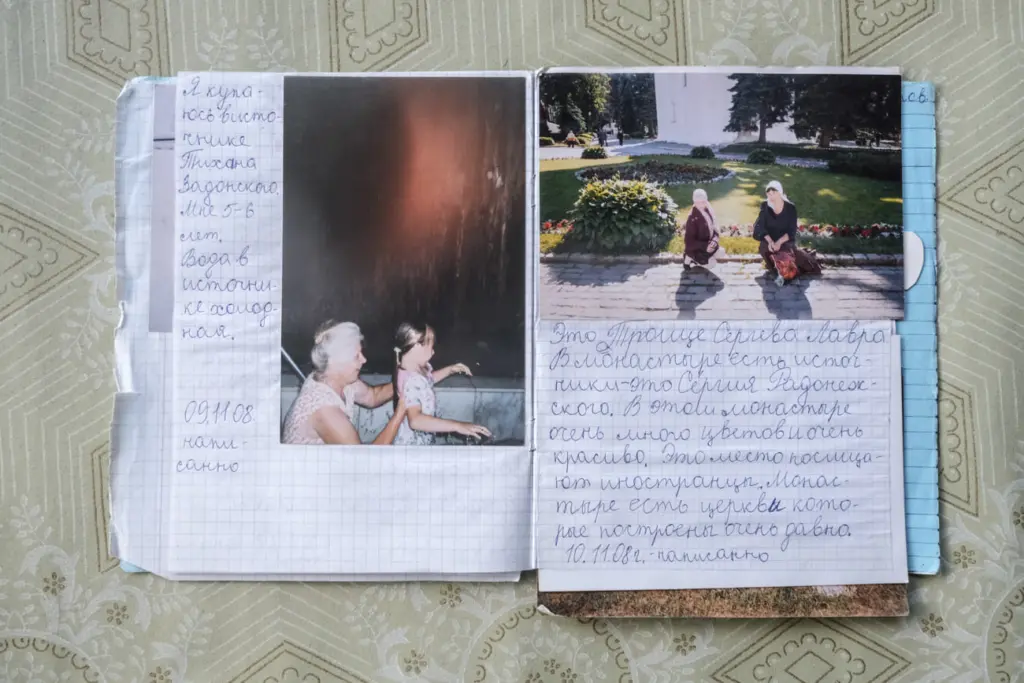 Я купа-
юсь в исто-
чнике
Тихана
Задонского.
Мне 5-6
лет.
Вода в
источни-
ке холод-
ная.
09.11.08
напи-
санно
Это Троице Сергева Лавра
В монастыре есть источ-
ники-это Сергия Радонеж-
ского. В этом монастыре
очень много цветов и очень
красиво. Это место посища-
ют иностранцы. Монас-
тыре есть церкви кото-
рые построены очень давно.
10.11.08г.-написанно